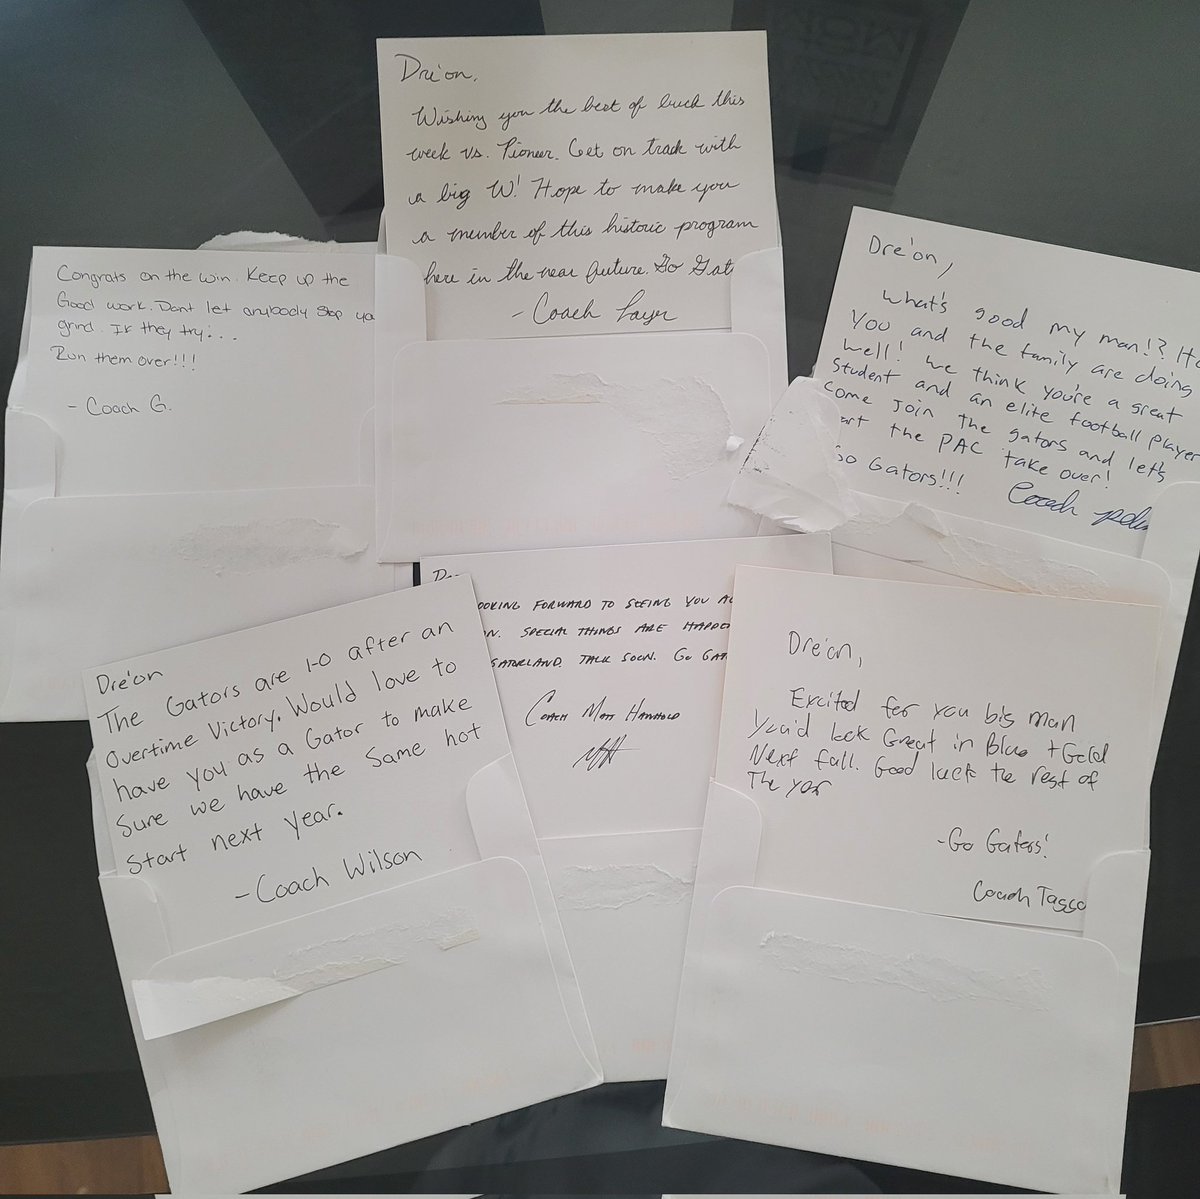 Dre'on,
Wishing you the best of luck this
week vs. Pioneer. Get on track with
a big W! Hope to make you
a member of this historic program
here in the near future. Go Gat
- Coach
Congrats on the win. Keep up the
Good work. Dont let anybody Stop yo
grind. If they try...
Run them over!!!
- Coach G.
Dre'on,
What's good my man!? Ho
You and the family are doing
well! We think you're a great
Student and an elite football player
come join the gators and let's
art the PAC take over!
Go Gators!!!
Coach
Dre'on
The Gators are 1-0 after an
Overtime Victory. Would love to
have you as a Gator to make
Sure we have the Same hot
Start next year.
- Coach Wilson
OOKING FORWARD TO SEEING YOU AG
N. SPECIAL THINGS ARE HAPPE
GATORLAND. TALK SOON. GO GAT
COACH MATT
Dre'on,
Excited for you big man
You'd look Great in Blue + Gold
Next fall. Good luck the rest of
The year
-Go Gators!
Coach Tasso